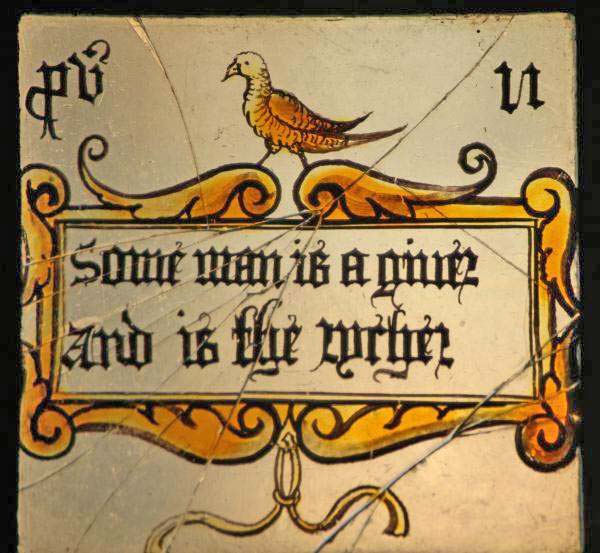 pv 11
Some man is a giuer
And is the rycher